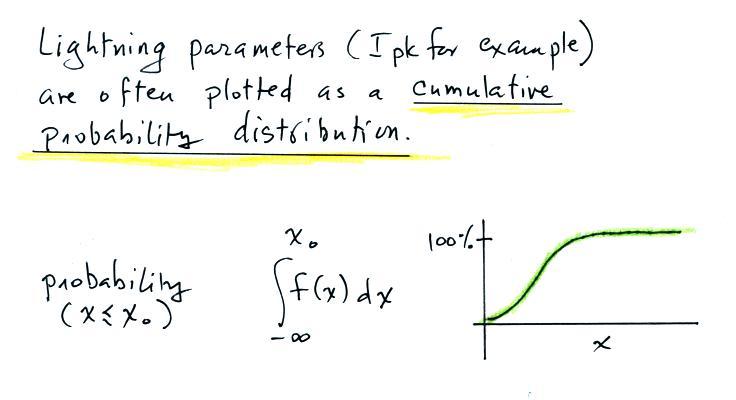 Lightning parameters (Ipk for example)
are often plotted as a cumulative
probability distribution.
probability
(x ≤ x₀)
x₀
∫ f(x) dx
-∞
100%
x